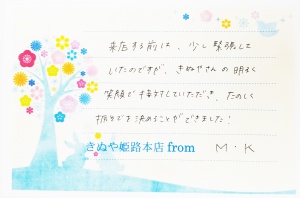 来店する前は、少し緊張して
いたのですが、きぬやさんの明るく
笑顔で接対していただき、たのしく
振りそでを決めることができました！
きぬや姫路本店 from M・K